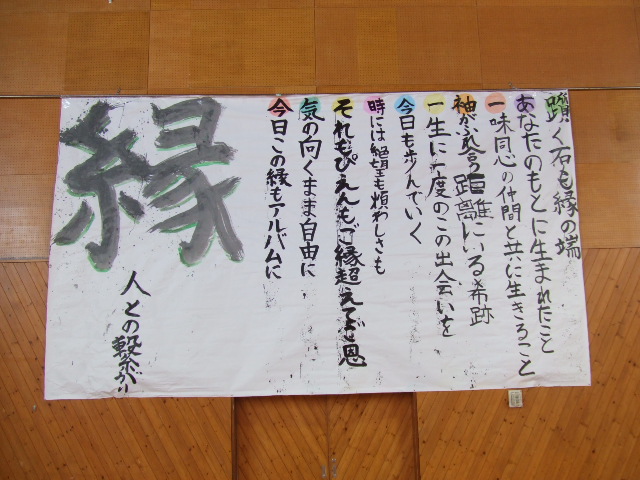 躓く石も縁の端
あなたのもとに生まれたこと
一味同心の仲間と共に生きること
袖がふれ合う距離にいる希跡
一生に一度のこの出会いを
今日も歩んでいく
時には絶望も煩わしさも
それもぴえんもご縁超えてぞ恩
気の向くまま自由に
今日この縁もアルバムに
縁
人との繋がり